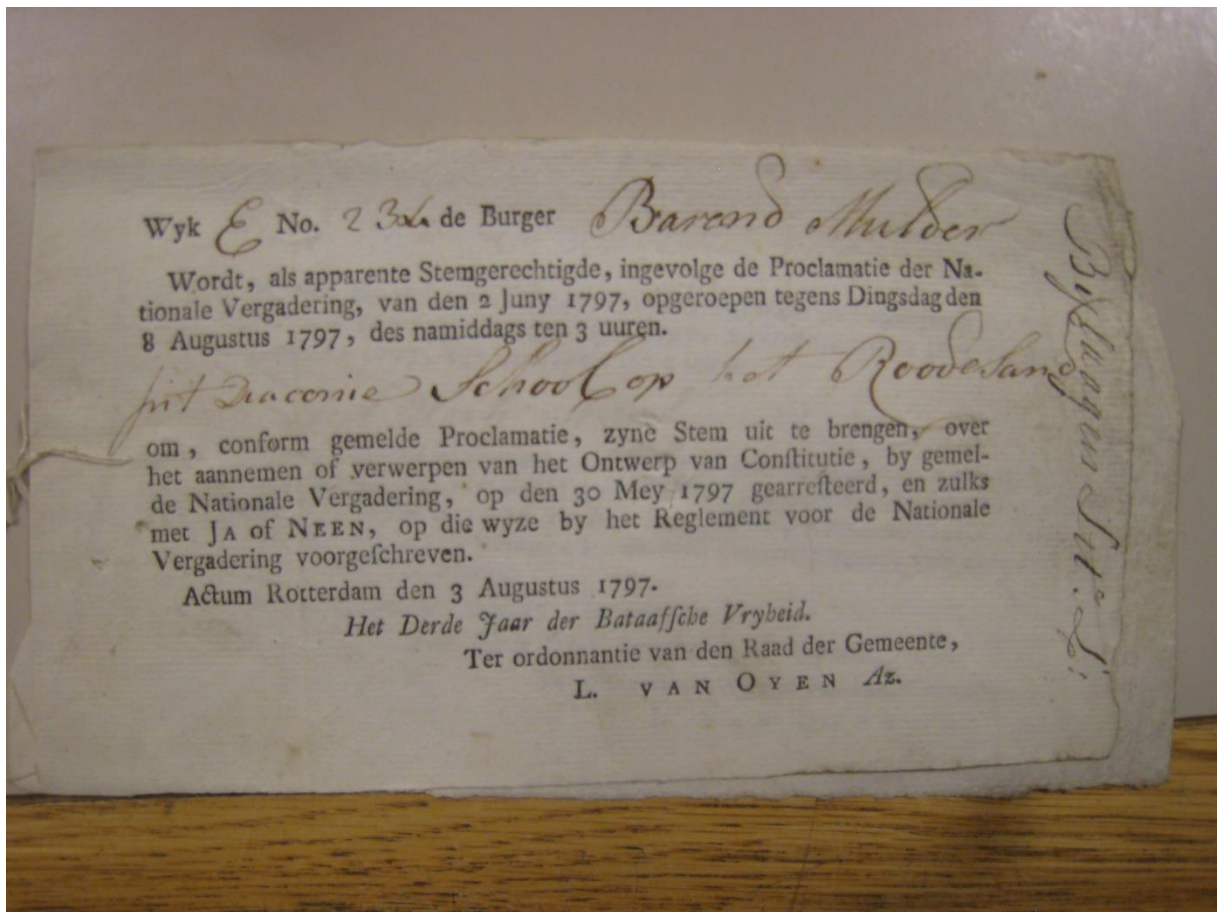 Wyk E No. 232 de Burger Barend Mulder
Wordt, als apparente Stemgerechtigde, ingevolge de Proclamatie der Na-
tionale Vergadering, van den 2 Juny 1797, opgeroepen tegens Dingsdag den
8 Augustus 1797, des namiddags ten 3 uuren.
Diaconie School op het Roodesand
om, conform gemelde Proclamatie, zyne Stem uit te brengen, over
het aannemen of verwerpen van het Ontwerp van Conſtitutie, by gemel-
de Nationale Vergadering, op den 30 Mey 1797 gearreſteerd, en zulks
met JA of NEEN, op die wyze by het Reglement voor de Nationale
Vergadering voorgeſchreven.
Actum Rotterdam den 3 Augustus 1797.
Het Derde Jaar der Bataafſche Vryheid.
Ter ordonnantie van den Raad der Gemeente,
L. VAN OYEN Az.
Byslagen